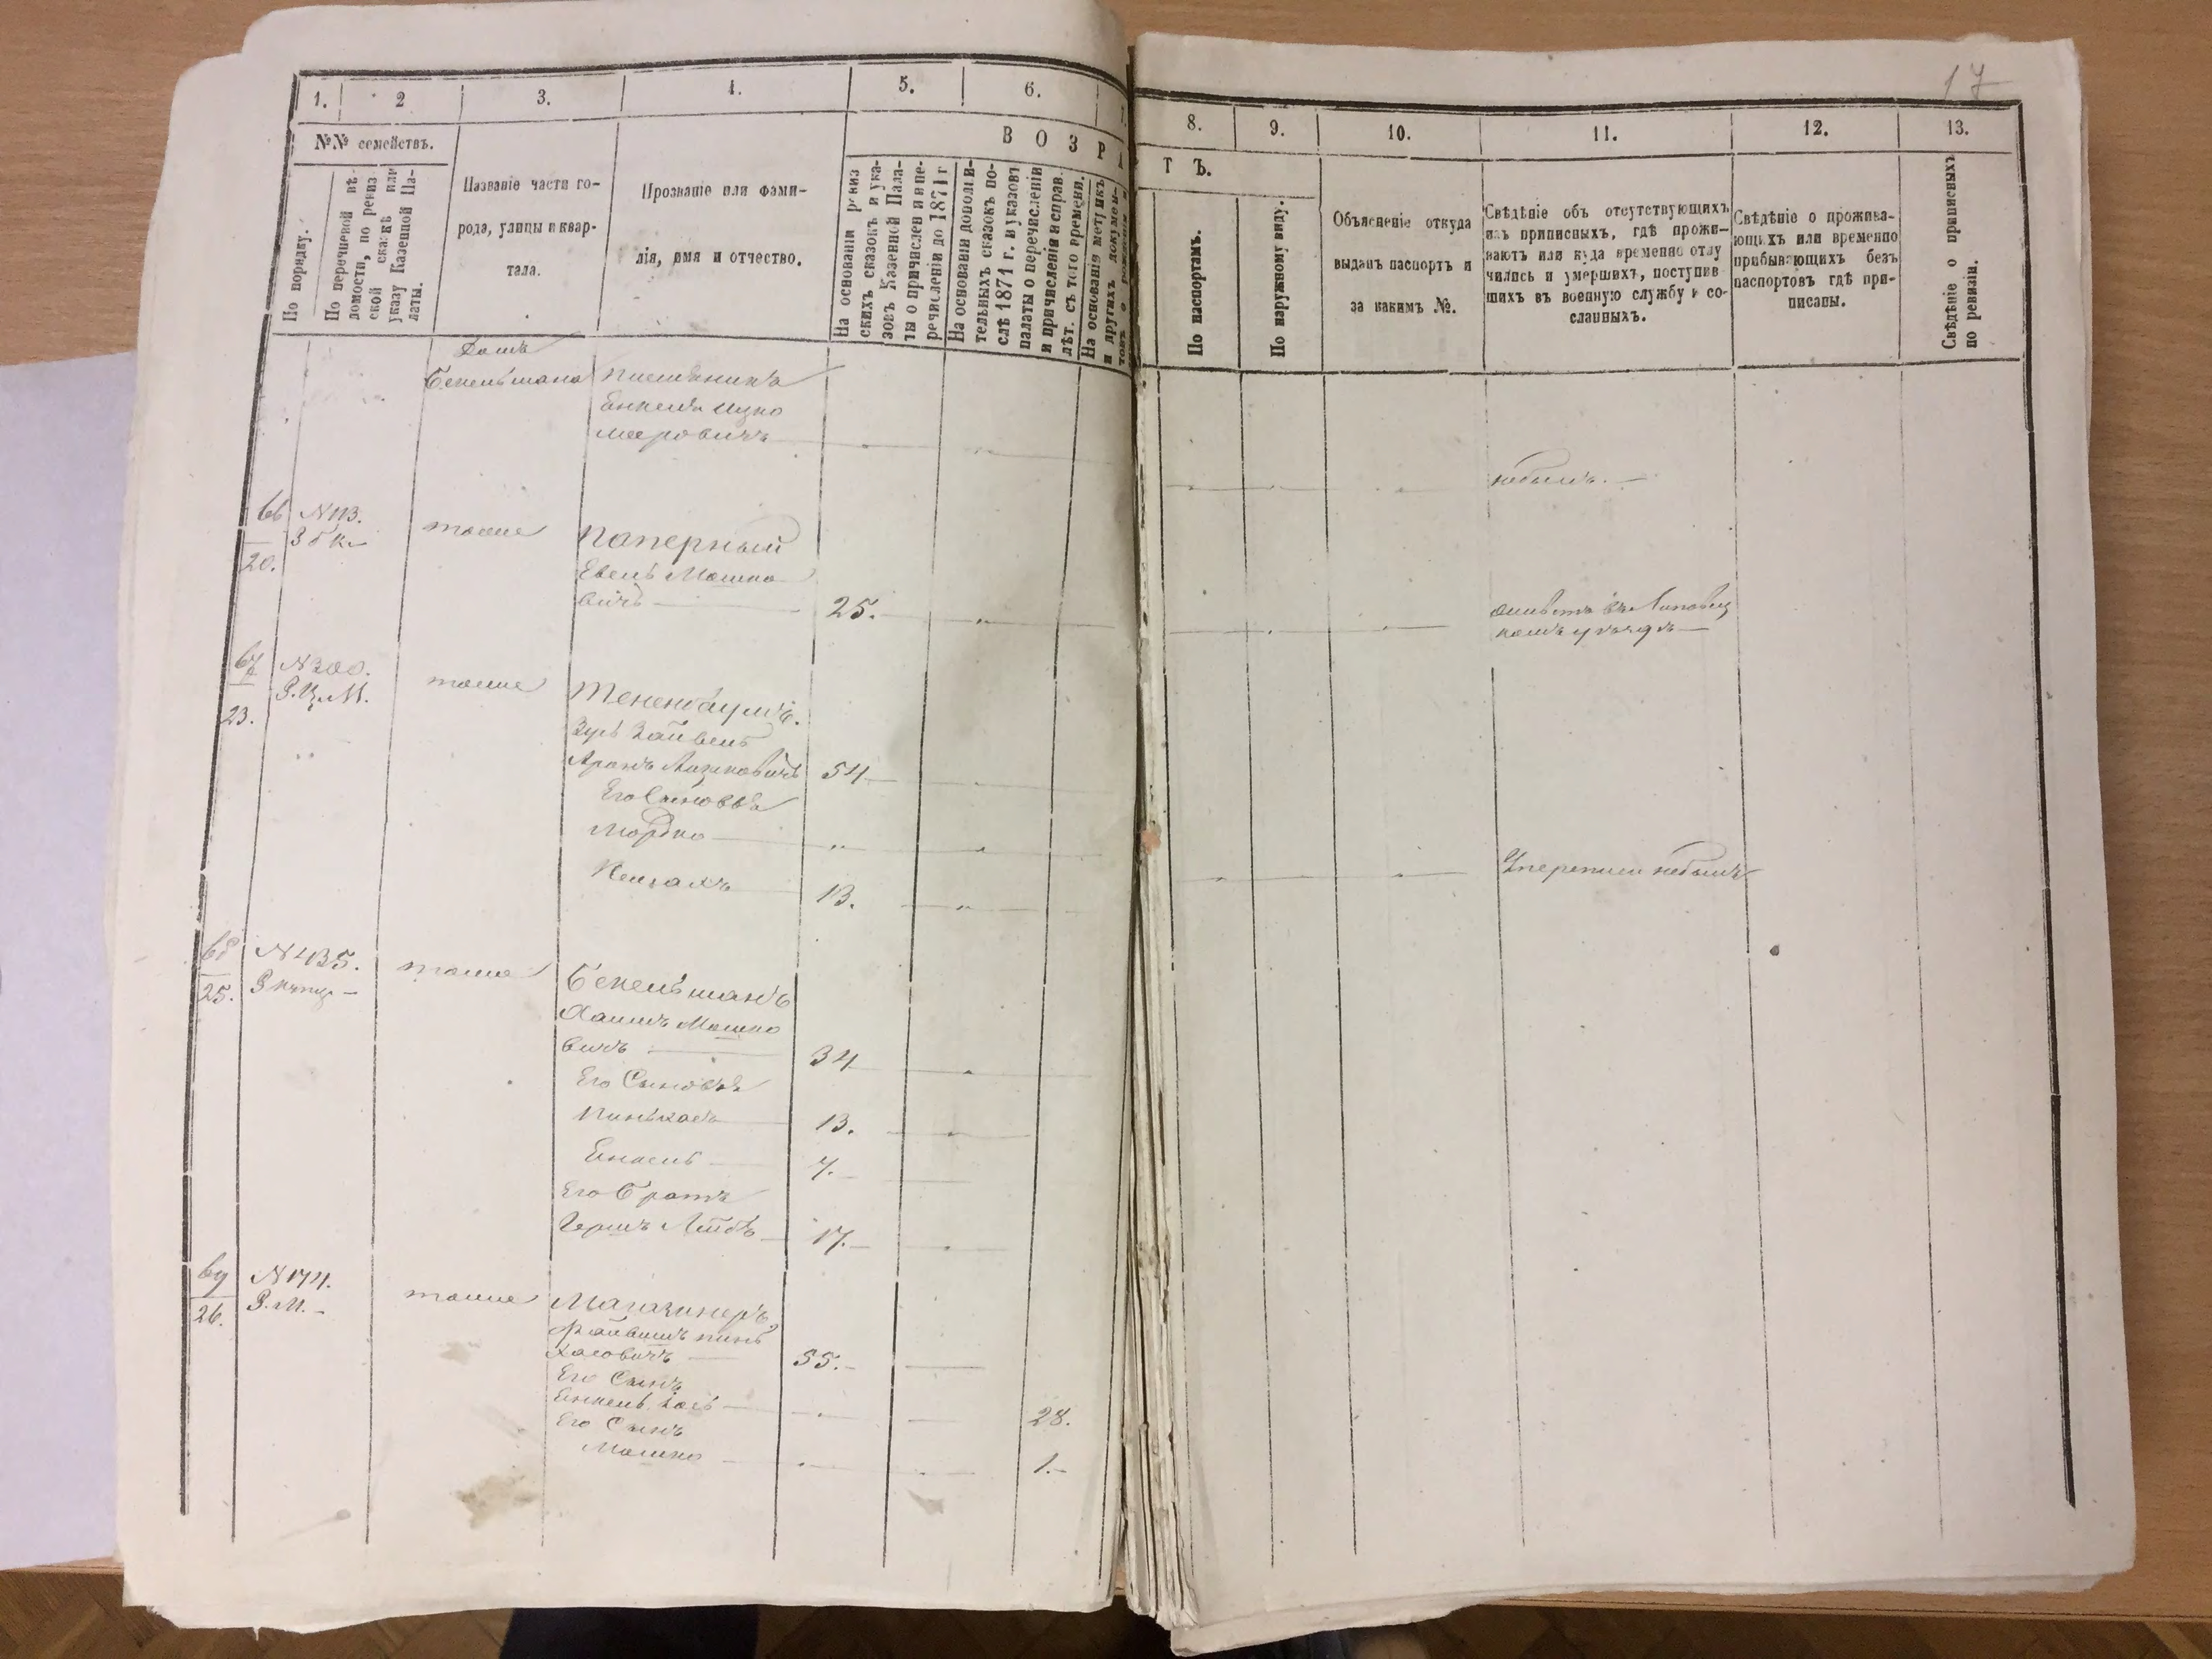 17
1. 2 3. 4. 5. 6.
№№ семействъ.
По порядку.
По перечневой вѣ-
домости, по ревиз
ской сказкѣ или
указу Казенной Па-
латы.
Названіе части го-
рода, улицы и квар-
тала.
Прозваніе или фами-
лія, имя и отчество.
ВОЗРА
На основаніи ревиз
скихъ сказокъ и ука-
зовъ Казенной Пала-
ты о причислен и и пе-
речисленіи до 1871 г
На основаніи дополни-
тельныхъ сказокъ по-
слѣ 1871 г. и указовъ
палаты о перечисленіи
и причисленіи и справ.
лѣт. съ того времени.
На основаніи метрикъ
и другихъ докумен-
8. 9. 10. 11. 12. 13.
ТЪ.
По паспортамъ.
По наружному виду.
Объясненіе откуда
выданъ паспортъ и
за какимъ №.
Свѣдѣніе объ отсутствующихъ
изъ приписныхъ, гдѣ прожи-
ваютъ или куда временно отлу
чились и умершихъ, поступив
шихъ въ военную службу и со-
сланныхъ.
Свѣдѣніе о прожива-
ющихъ или временно
прибывающихъ безъ
паспортовъ гдѣ при-
писаны.
Свѣдѣніе о приписныхъ
по ревизіи.
Домъ
Бекельмана
Енкель Ицко
Мееровичъ
небылъ.
66 N 113.
20.
тоже Паперный
Евель Мошко
вичъ 25.
въ Липовец
комъ уѣздѣ
67 N 300.
23.
тоже Тененбаумъ.
Аронъ 54
Его Сыновья
Мордко
13.
У переписи небылъ
68 N 435.
25.
тоже Бекельманъ
Хаимъ Мошко
вичъ 34
Его Сыновья
Пинькасъ 13.
7.
Его Братъ
Гершъ Лейбъ 17.
69 N 174.
26. З.М.
тоже Магазинеръ
Файвишъ Пинь
хасовичъ 55.
Его Сынъ
28.
Его Сынъ
Мошко 1.